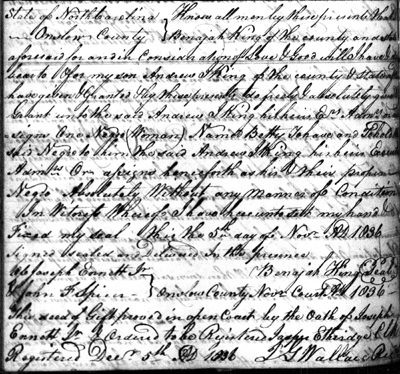 State of North Carolina } Know all men by these presents that
Onslow County } Benajah King of the county and
aforesaid for and in Consideration of Love & Good will I have &
bear to & for my son Andrew J King of the county & state
have given & Granted & by these presents do freely & absolutely give &
Grant unto the said Andrew J King his heirs Exrs Admrs or
signs One Negro (Woman) Named Betty To have and To hold
said Negro to him the said Andrew J King his heirs
Admrs. Or assigns henceforth as his & their proper
Negro Absolutely Without any Manner of Condition
In Witness thereof I have hereunto set my hand &
Fixed my Seal this the 5th day of Novr AD 1836
Signed sealed and delivered In the presence
of Joseph Ennett Jr } Benajah King Seal
& John F Spicer } Onslow County Novr Court AD 1836
This deed of Gift proved in open Court by the Oath of Joseph
Ennett Jr & Ordered to be Registered Jasper Etheridge Clk
Registered Decr 5th AD 1836 Wallace